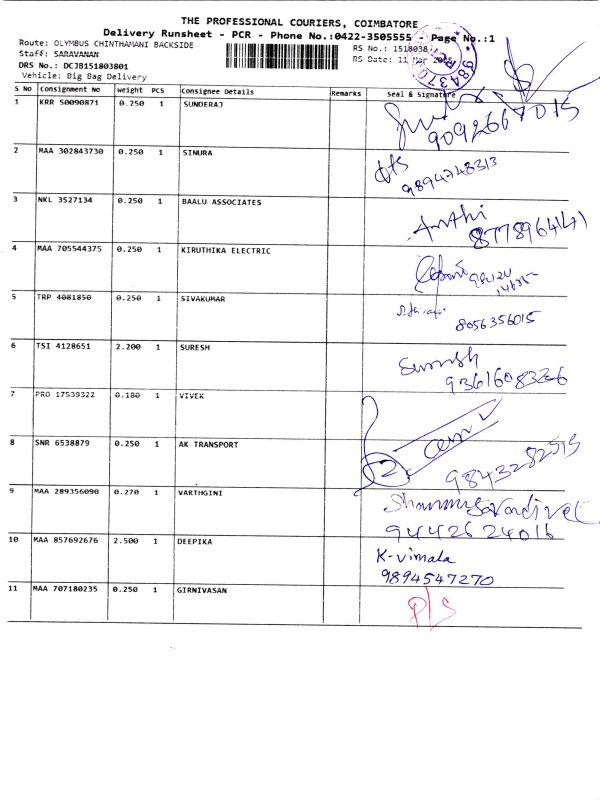 THE PROFESSIONAL COURIERS, COIMBATORE
Delivery Runsheet - PCR - Phone No.:0422-3505555 - Page No.:1
Route: OLYMBUS CHINTHAMANI BACKSIDE
RS No.: 1518038
Staff: SARAVANAN
RS Date: 11 Mar
DRS No.: DCJB151803801
Vehicle: Big Bag Delivery
S No Consignment No Weight PCS Consignee Details Remarks Seal & Signature
1 KRR 50090871 0.250 1 SUNDERAJ
9092667015
2 MAA 302843730 0.250 1 SINURA
9894748313
3 NKL 3527134 0.250 1 BAALU ASSOCIATES
Aarthi
4 MAA 705544375 0.250 1 KIRUTHIKA ELECTRIC
5 TRP 4081850 0.250 1 SIVAKUMAR
8056356015
6 TSI 4128651 2.200 1 SURESH
Suresh
9361608326
7 PRO 17539322 0.180 1 VIVEK
8 SNR 6538879 0.250 1 AK TRANSPORT
9843282515
9 MAA 289356090 0.270 1 VARTHGINI
Shanmugavadivel
9442624016
10 MAA 857692676 2.500 1 DEEPIKA
K-vimala
9894547270
11 MAA 707180235 0.250 1 GIRNIVASAN
P/S